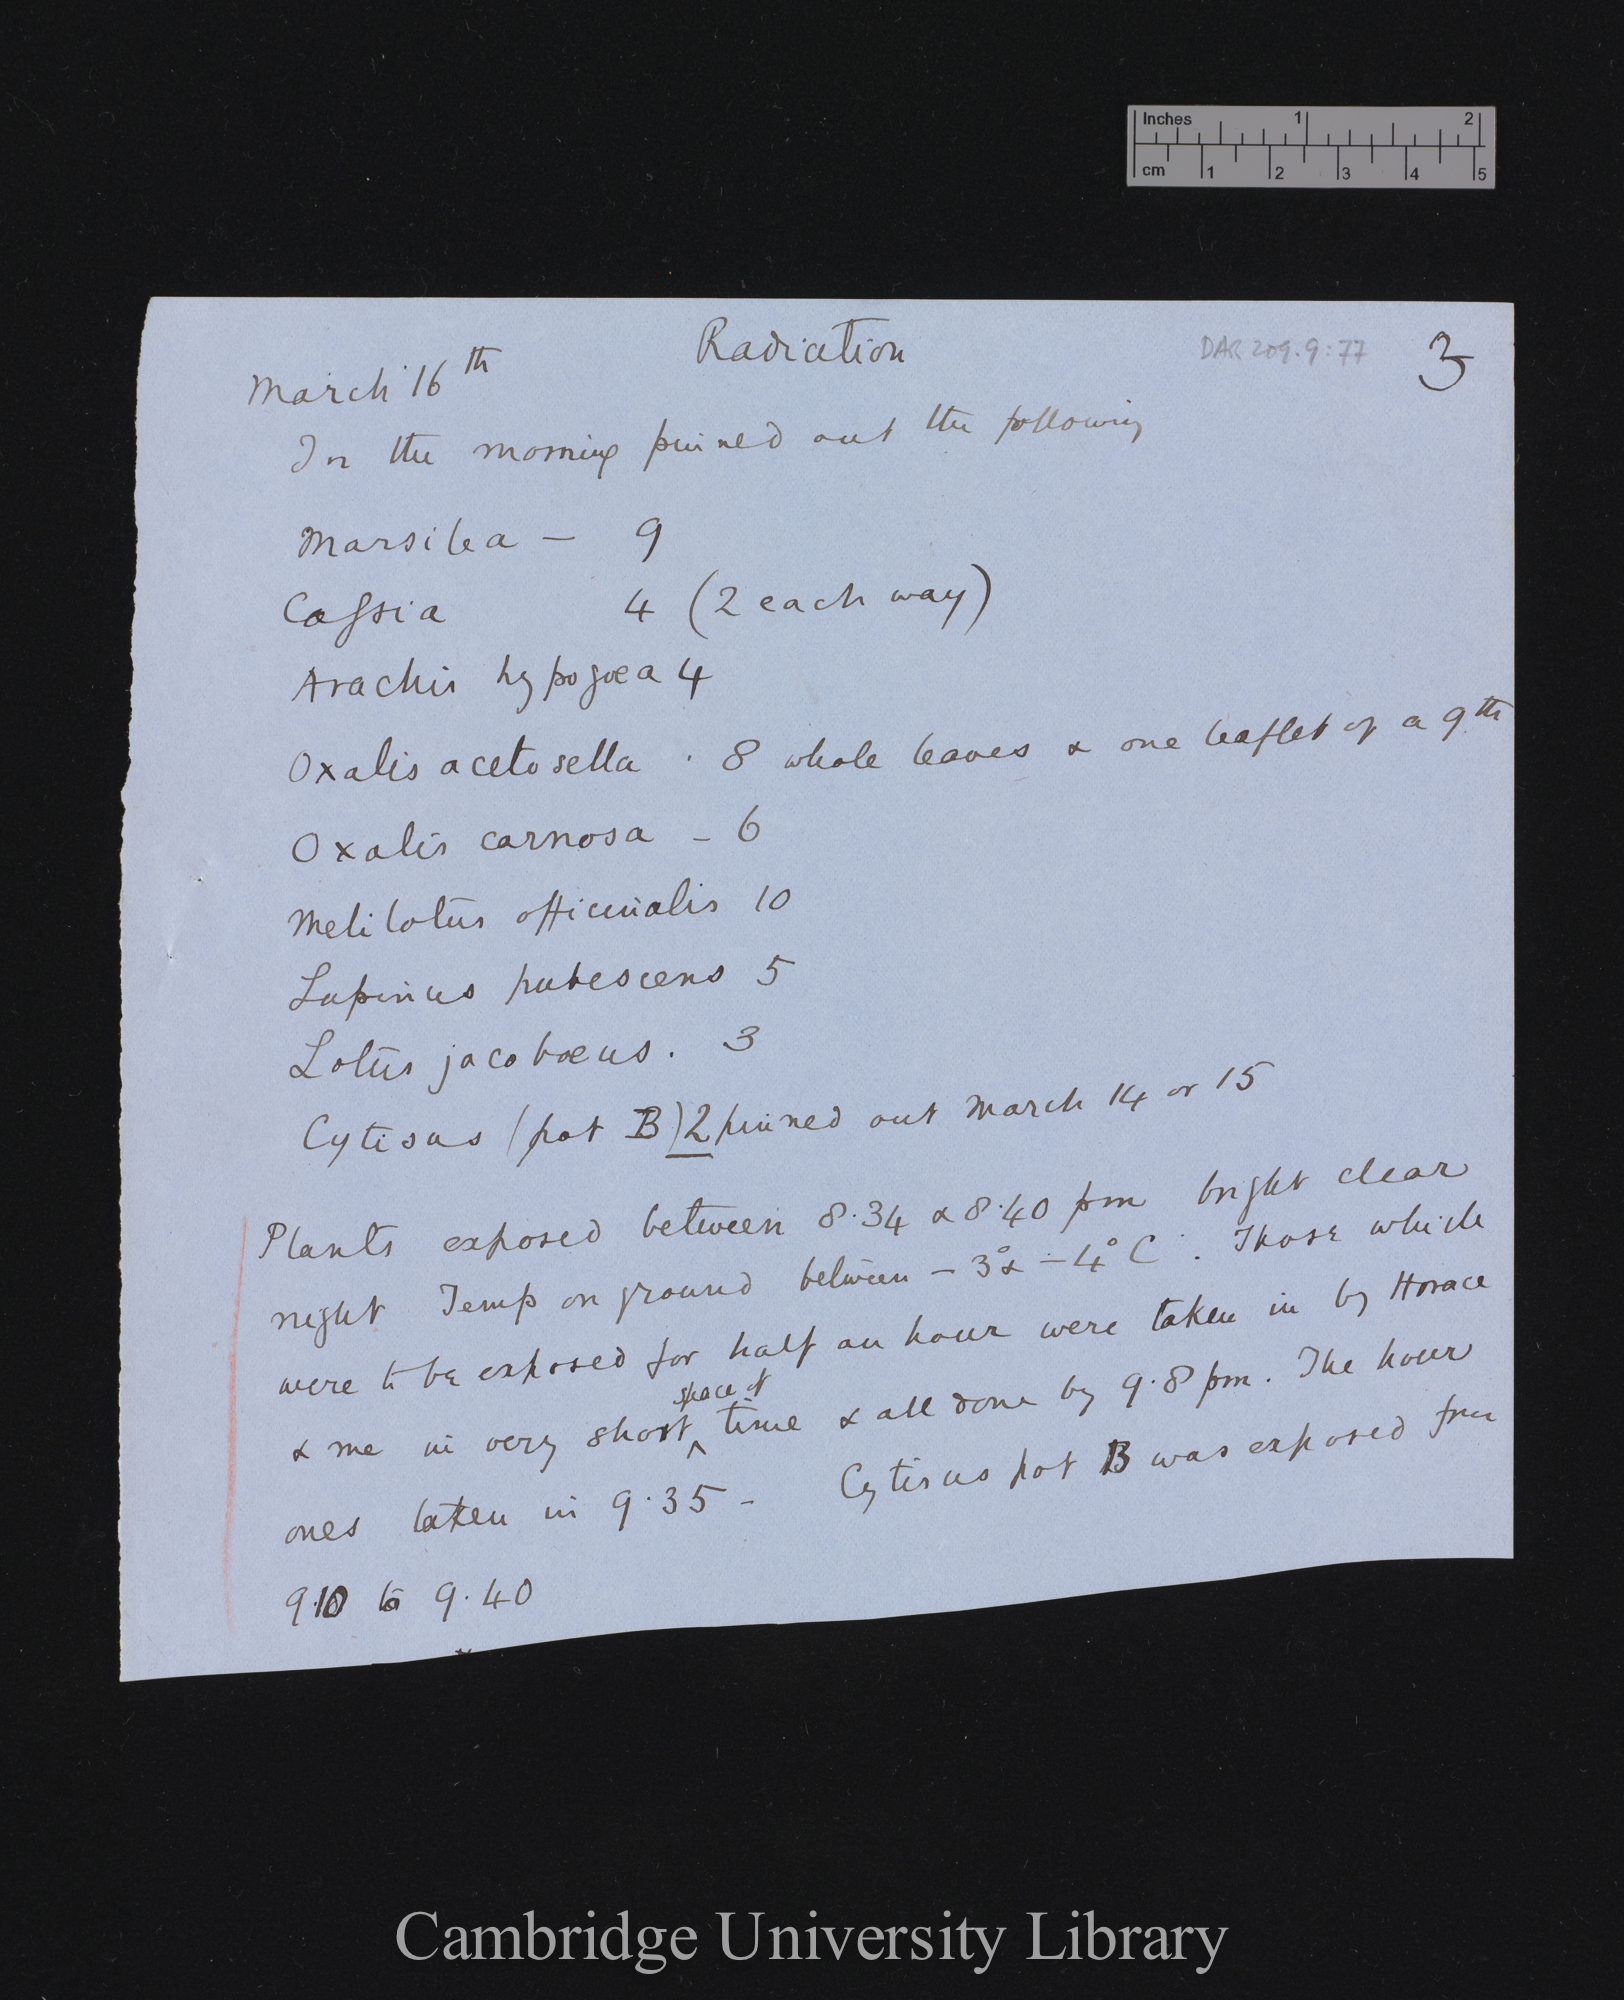 Inches 1 2
cm 1 2 3 4 5
Radiation
DAR 209.9:77
3
March 16th
In the morning pinned out the following
Marsilea — 9
Cassia 4 (2 each way)
Arachis hypogœa 4
Oxalis acetosella . 8 whole leaves & one leaflet of a 9th
Oxalis carnosa - 6
Melilotus officinalis 10
Lupinus pubescens 5
Lotus jacobœus. 3
Cytisus (pot B) 2 pinned out March 14 or 15
Plants exposed between 8.34 & 8.40 pm bright clear
night Temp on ground between -3° & -4° C. Those which
were to be exposed for half an hour were taken in by Horace
& me in very short space of time & all done by 9.8 pm. The hour
ones taken in 9.35 - Cytisus pot B was exposed from
9.10 to 9.40
Cambridge University Library